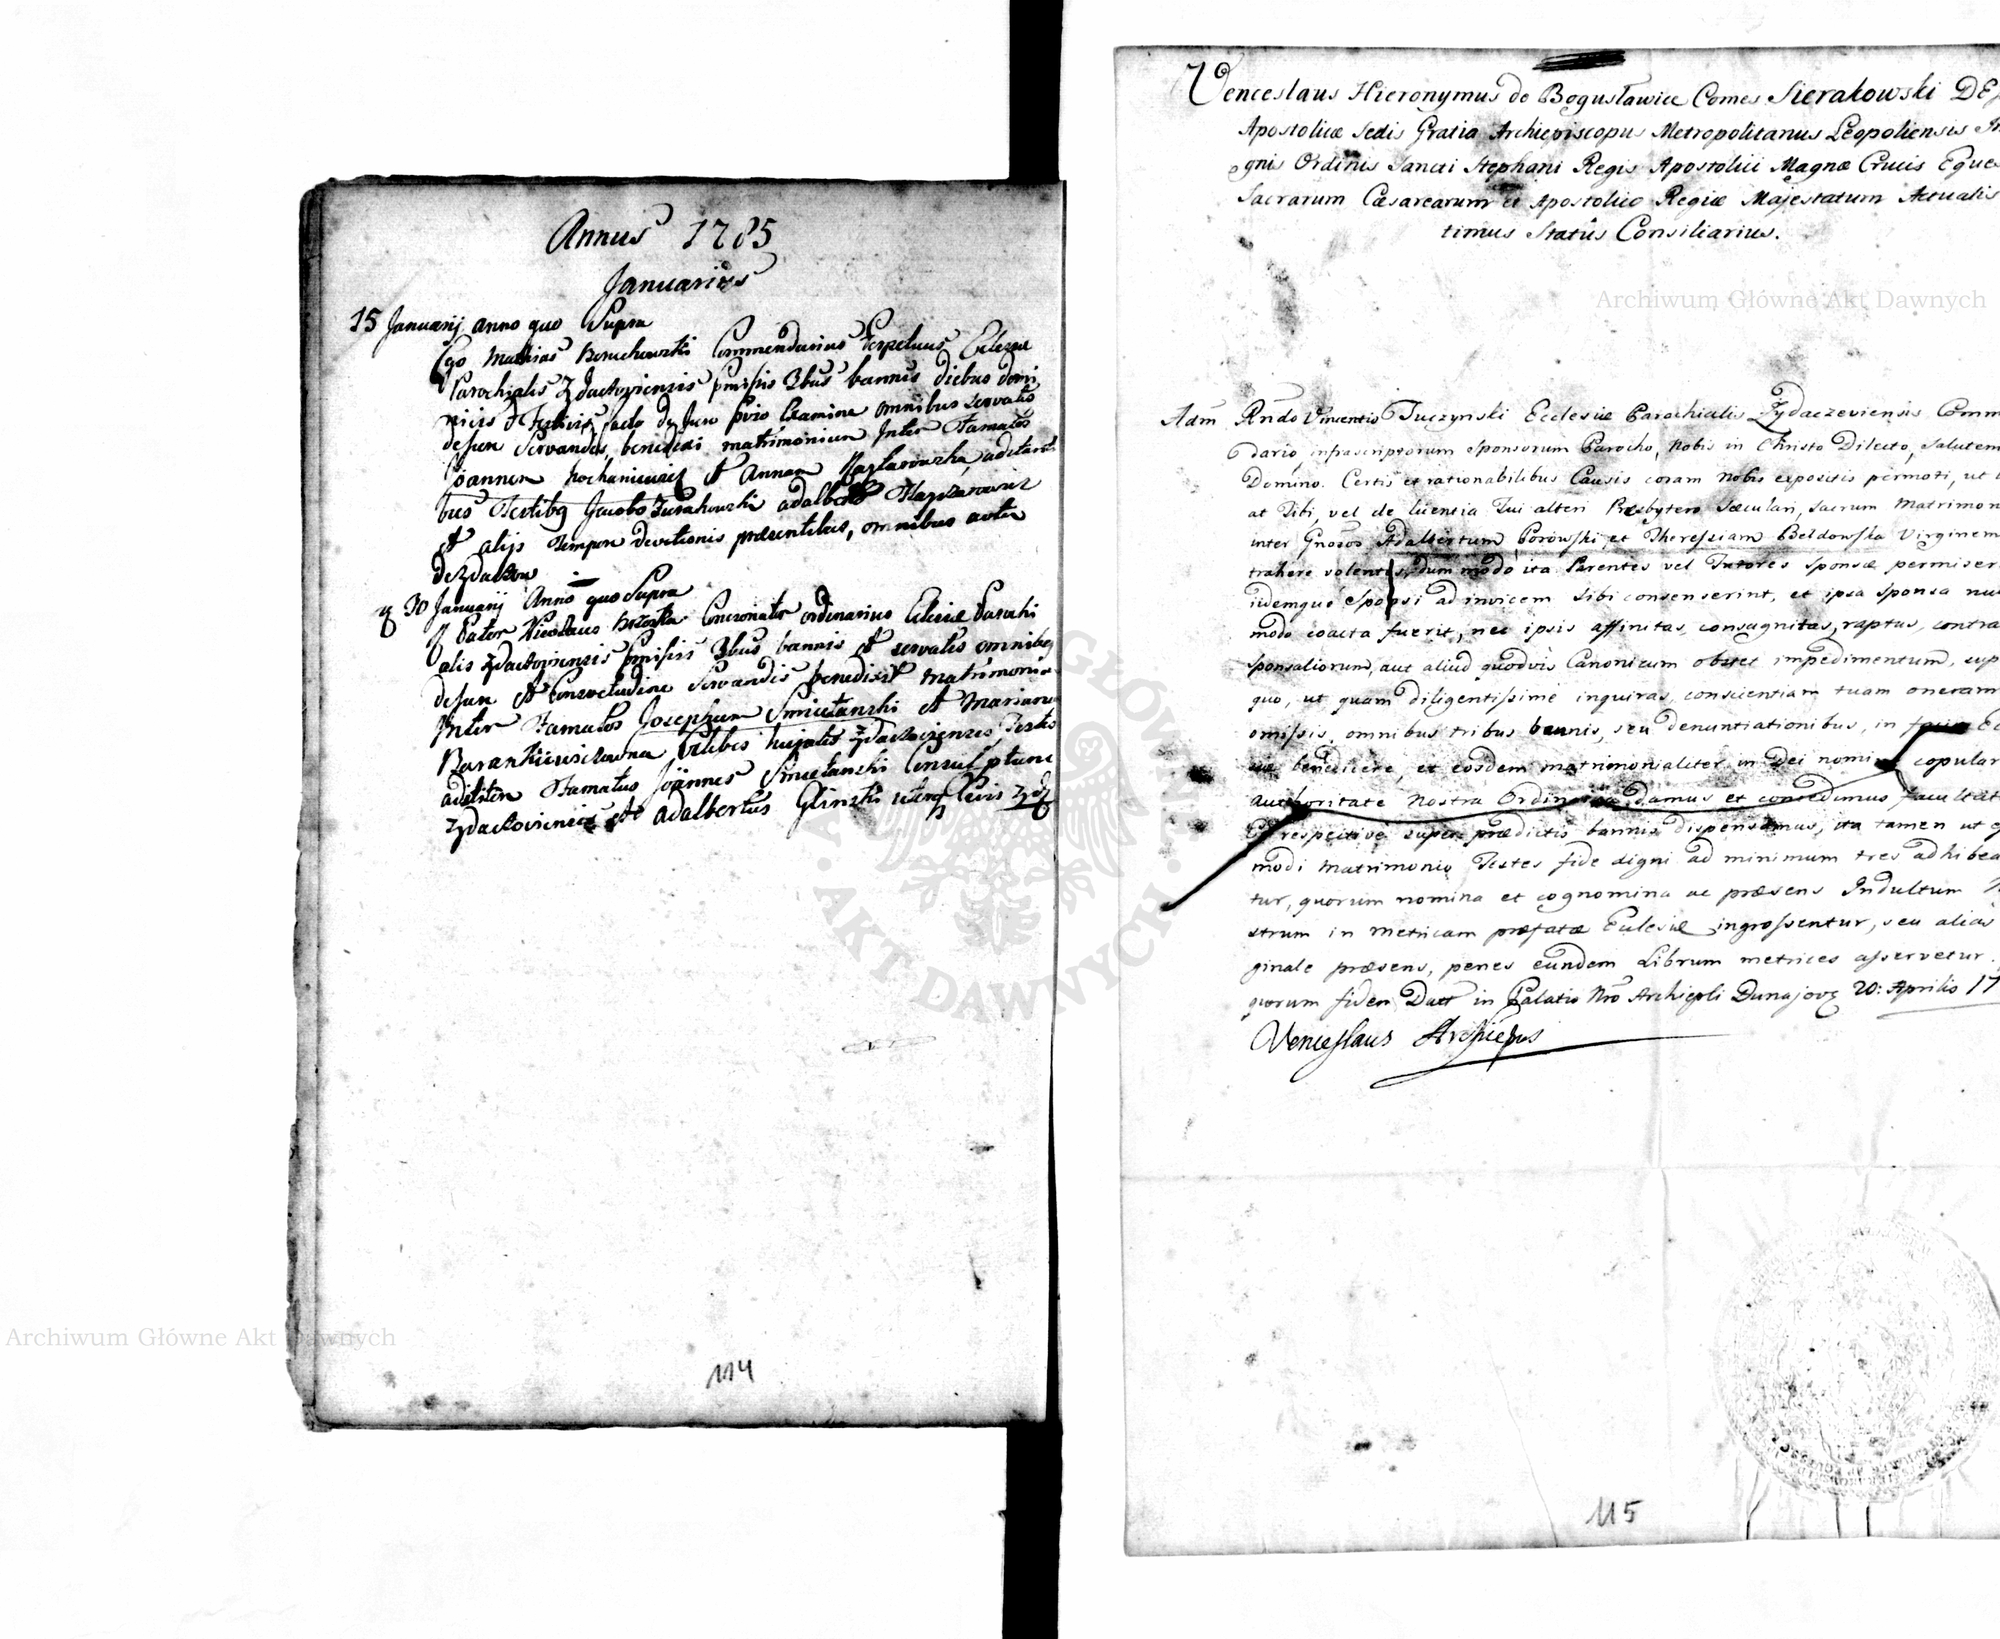 Annus 1785
Januarius
15 Januarij anno quo Supra
Ego Mathias Commendarius Perpetuus Ecclesiae
Parochialis Zydaczoviensis pmissis 3bus bannis diebus domi
nicis et Festivis, facto de Jure pvio Examine omnibus servatis
de Jure Servandis, benedixi matrimonium Inter Famatos
Joannem et Annam
bus Testibg Jacobo Zurakowski adalberto
et alijs Tempore devotionis praesentibus, omnibus
de Zydaczow
30 Januarij Anno quo Supra
Pater Nicolaus Concionator ordinarius Eclesiae Parochi
alis Zydaczoviensis pmissis 3bus bannis et servatis omnibg
de Jure et Consvetudine Servandis benedixit matrimonium
Inter Famatos Josephum Smietanski et Mariannam
Celibes hujatis Zydaczovienses, Testes
aditi Famatus Joannes Smietanski Consul ptunc
Zydacoviensis et adalbertus Glinski
114
Venceslaus Hieronymus de Bogusławice Comes Sierakowski DEI
Apostolicæ Sedis Gratia Archiepiscopus Metropolitanus Leopoliensis In
gnis Ordinis Sancti Stephani Regis Apostolici Magnæ Crucis Eques
Sacrarum Cæsarearum et Apostolico Regiæ Majestatum Actualis
timus Statûs Consiliarius.
Adm Rndo Vincentio Tuczynski Ecclesiæ Parochialis Zydaczeviensis Comm
dario infrascriptorum Sponsorum Parocho, Nobis in Christo Dilecto, Salutem
Domino. Certis et rationabilibus Causis coram Nobis expositis permoti, ut
at Tibi, vel de licentia Tui alteri Presbytero Sæculari, Sacrum Matrimon
inter Gnosos Adalbertum Porowski, et Theressiam Beldowska Virginem
trahere volentes, dum modo ita Parentes vel Tutores Sponsæ permiser
iidemque Sponsi ad invicem Sibi consenserint, et ipsa Sponsa nul
modo coacta fuerit, nec ipsis affinitas, consagnitas, raptus, contra
sponsaliorum, aut aliud quodvis Canonicum obstet impedimentum, sup
quo, ut quam diligentissime inquiras, conscientiam tuam oneram
omissis omnibus tribus bannis, seu denuntiationibus, in facie Ec
benedicere, et eosdem matrimonialiter in Dei nomine copular
authoritate Nostra Ordinaria damus et concedimus facultat
respective super prædictis bannis dispensamus, ita tamen ut
modi Matrimonio Testes fide digni ad minimum tres adhibea
tur, quorum nomina et cognomina ac præsens Indultum
strum in metricam præfatæ Ecclesiæ ingrossentur, seu alias
ginale præsens, penes eundem Librum metrices asservetur.
quorum fidem Datt in Palatio Nro Archiepli Dunajov 20: Aprilis 17
Venceslaus Archiepus
115
Archiwum Główne Akt Dawnych
Archiwum Główne Akt Dawnych
GŁÓWNE
AKT DAWNYCH